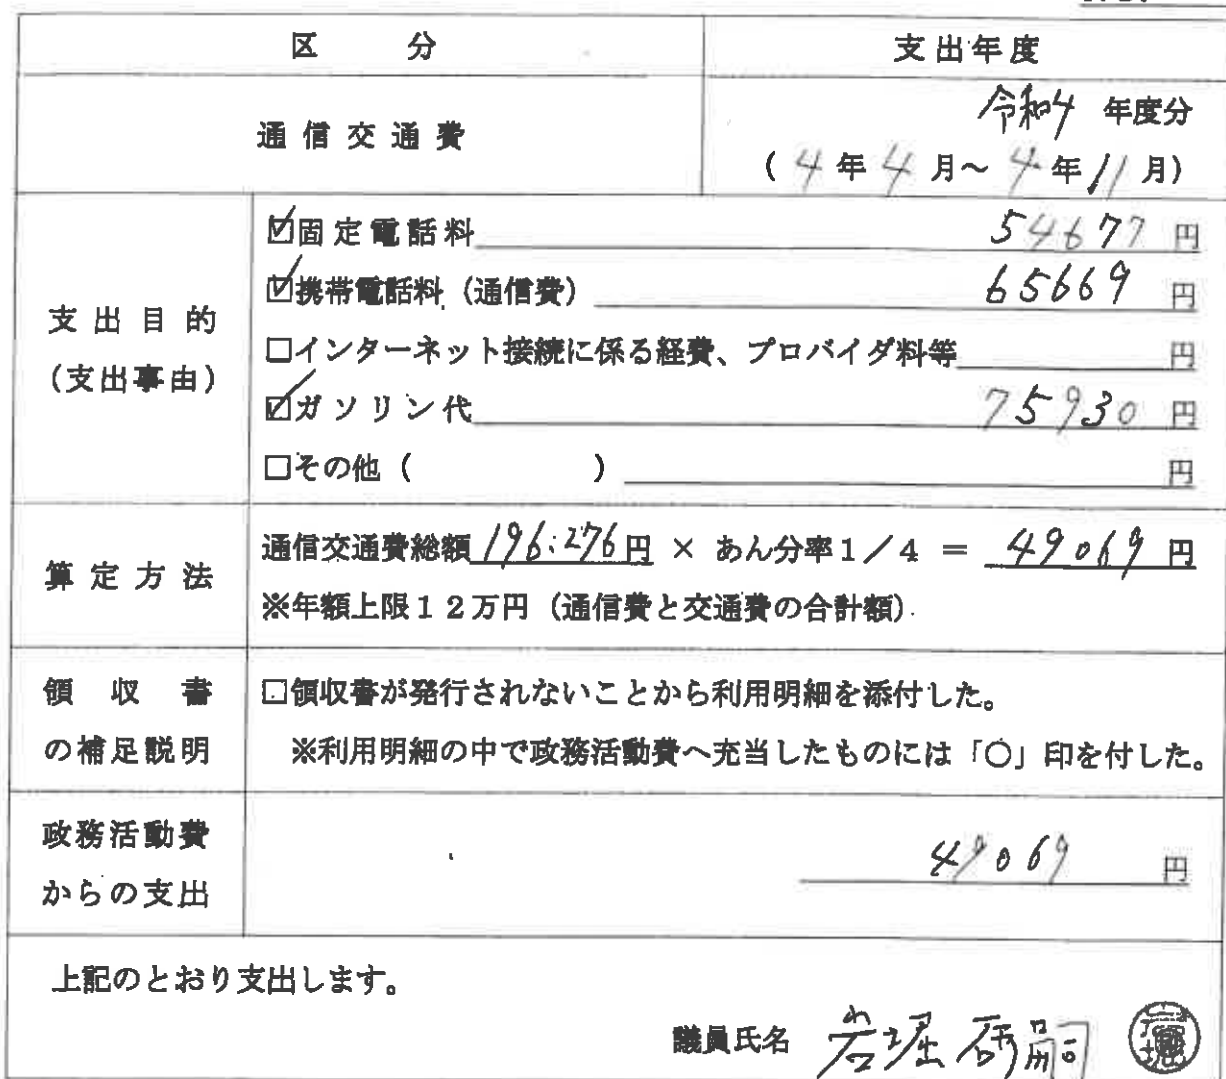 区 分
支出年度
通信交通費
令和4 年度分
( 4 年 4 月～ 4 年 11 月)
支出目的
(支出事由)
☑固定電話料 54677 円
☑携帯電話料(通信費) 65669 円
□インターネット接続に係る経費、プロバイダ料等 円
☑ガソリン代 75930 円
□その他( ) 円
算定方法
通信交通費総額 196,276円 × あん分率1/4 = 49069 円
※年額上限12万円(通信費と交通費の合計額)
領収書
の補足説明
□領収書が発行されないことから利用明細を添付した。
※利用明細の中で政務活動費へ充当したものには「○」印を付した。
政務活動費
からの支出
49069 円
上記のとおり支出します。
議員氏名 岩堀研嗣